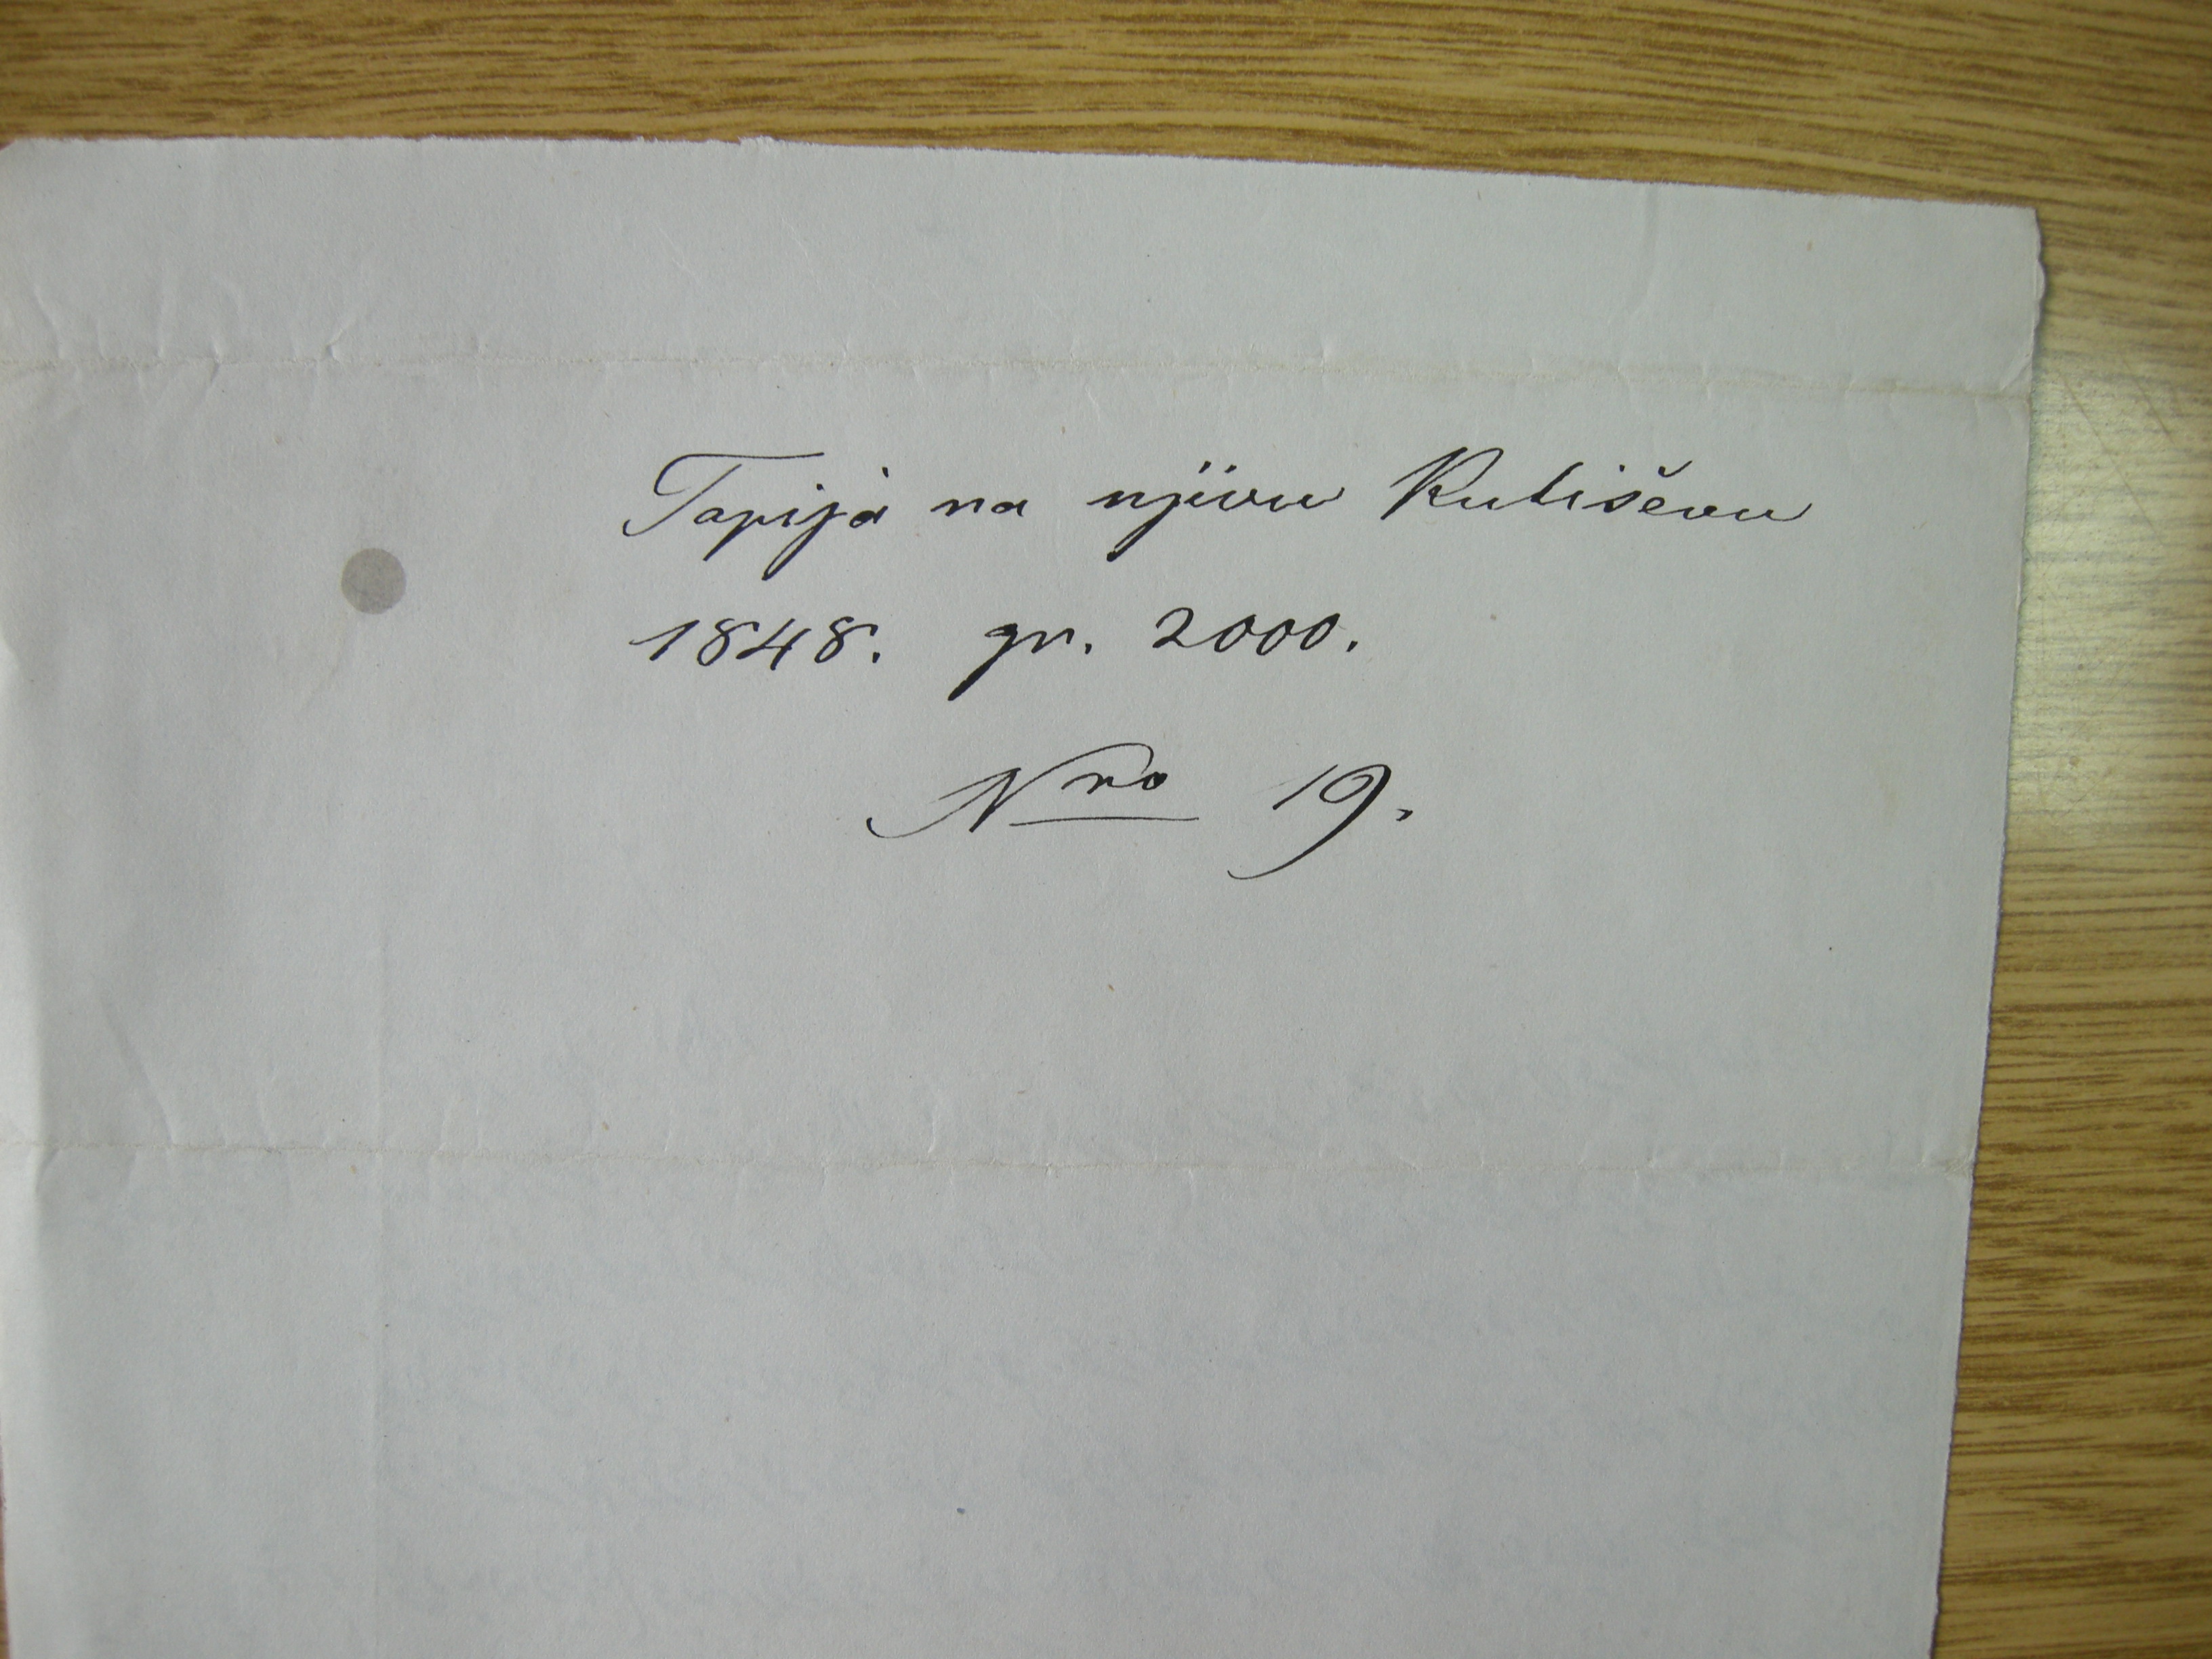 Tapija na njivu Kutiševu
1848. gr. 2000.
Nro 19.